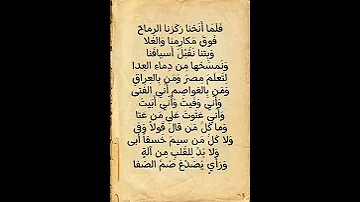 فَلَمّا أَنَخنا رَكَزنا الرِماحَ
فَوقَ مَكارِمِنا وَالعُلا
وَبِتنا نُقَبِّلُ أَسيافَنا
وَنَمسَحُها مِن دِماءِ العِدا
لِتَعلَمَ مِصرُ وَمَن بِالعِراقِ
وَمَن بِالعَواصِمِ أَنّي الفَتى
وَأَنّي وَفَيتُ وَأَنّي أَبَيتُ
وَأَنّي عَتَوتُ عَلى مَن عَتا
وَما كُلُّ مَن قالَ قَولاً وَفى
وَلا كُلُّ مَن سيمَ خَسفاً أَبى
وَلا بُدَّ لِلقَلبِ مِن آلَةٍ
وَرَأيٍ يُصَدِّعُ صُمَّ الصَفا